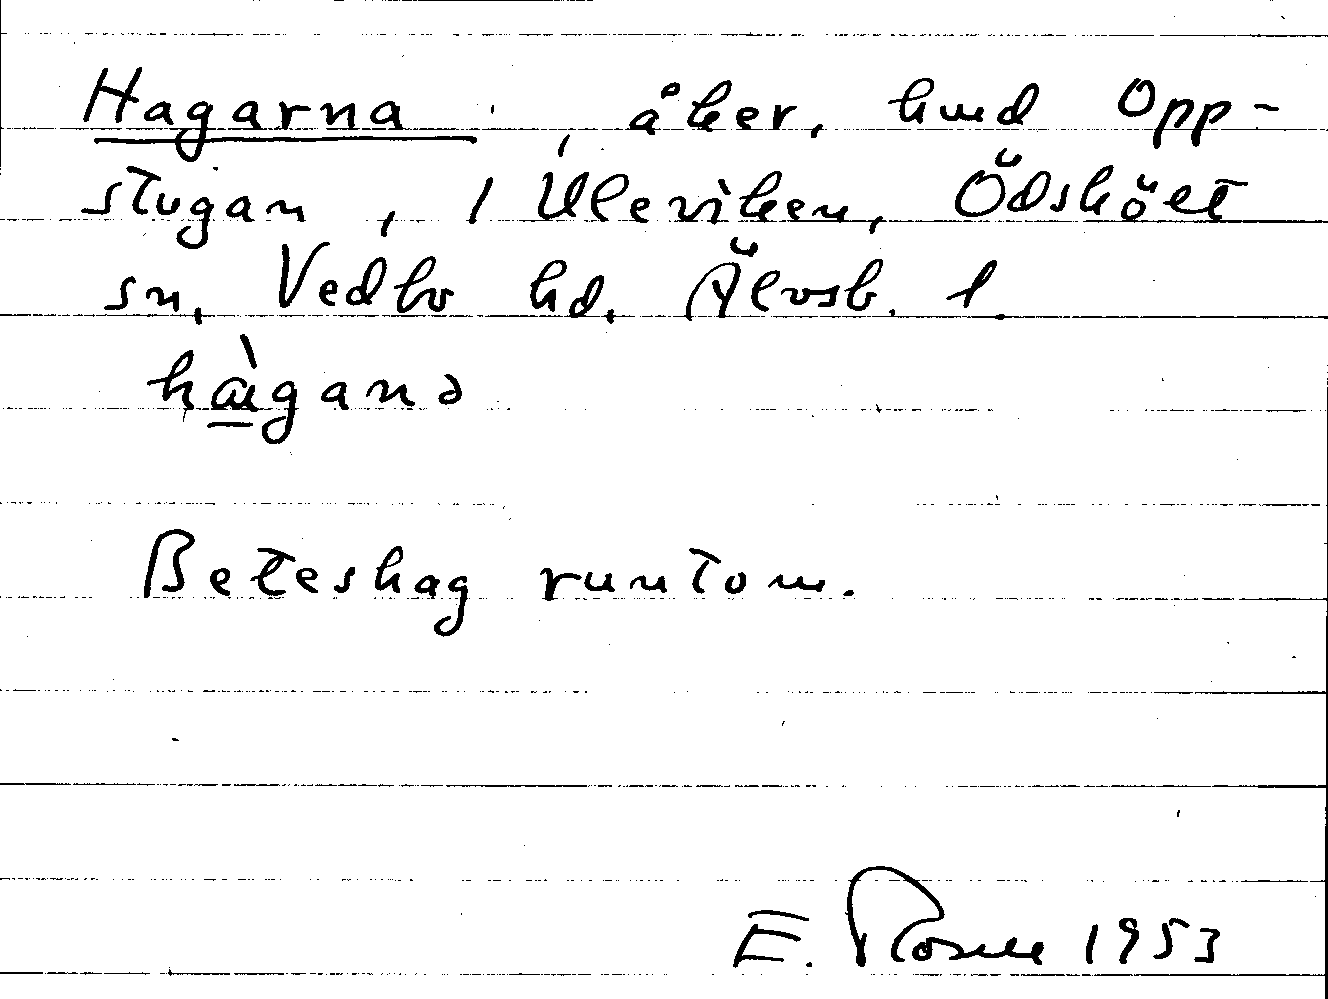 Hagarna, åker, hmd Opp-
stugan, 1 Uleviken, Ödskölt
sn, Vedbo hd, Älvsb. l.
hàgana
Beteshag runtom.
E. Rosell 1953